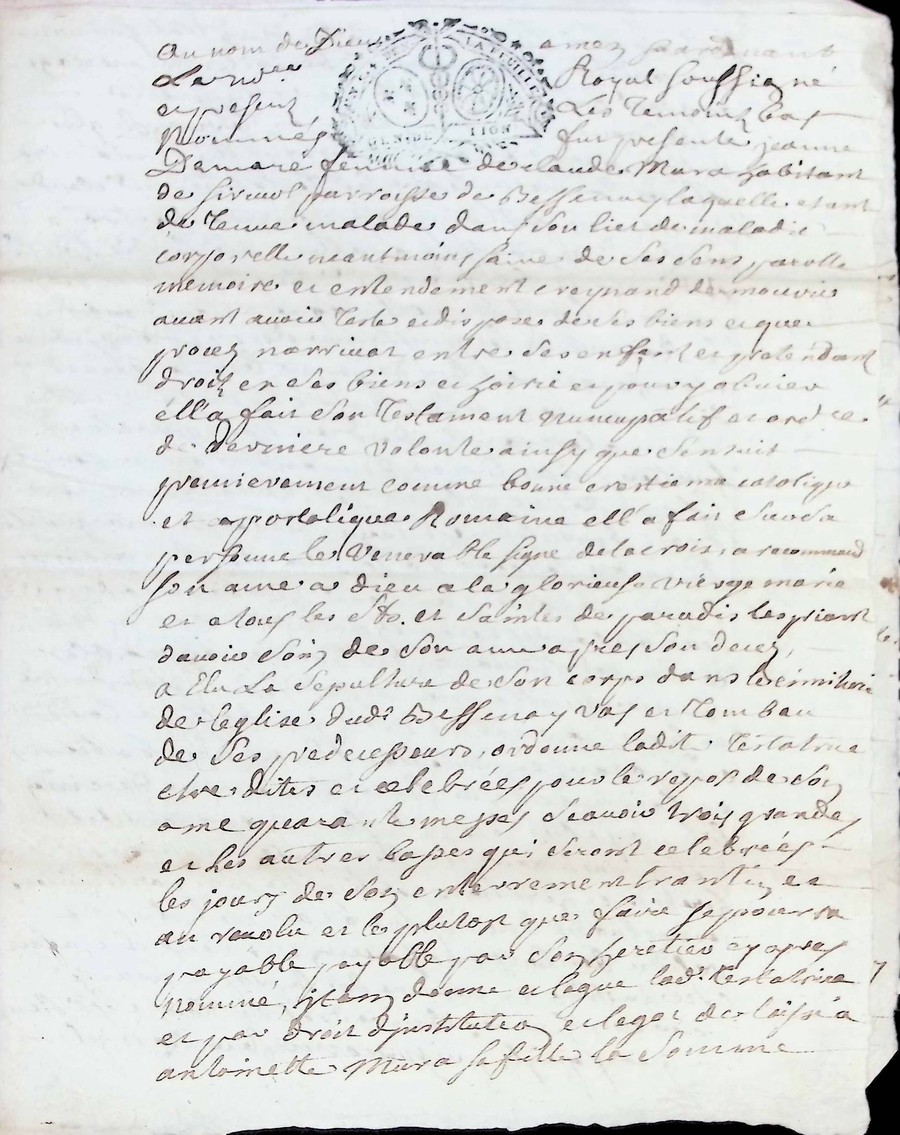 Au nom de Dieu amen pardevant
Le no.re Royal soussigné
et presents Les Temoins bas
Nommés fut presente jeanne
Demare femme de claude Mura habitant
de sirimol parroisse de Bessenay laquelle etant
de Tenue malade dans son liet de maladie
corporelle neantmoins saine de ses sens parolle
mémoire et entendement creynand de mourir
avant avoir Testé et disposé de ses biens et que
procez narrivat entre ses enfant et pretendant
droit en ses biens et hoirie et pour y obvier
ell'a fait son Testament Nuncupatif et ord.ce
de derniere volonté ainsy que sensuit
premierement comme bonne crestienne catolique
et apostolique Romaine ell'a fait sur sa
personne le Venerable signe de la croix, a recommand
son ame a dieu a la glorieuse vierge marie
et a tous les Sts. et saintes de paradis les priant
davoir soin de son ame apres son decez,
a Elu La sepulture de son corps dans le cimitiere
de leglise dudt Bessenay Vas et Tombau
de ses predecesseurs, ordonne ladite Testatrice
etre dites et celebrées pour le repos de son
ame quarante messes scavoir trois grandes
et les autres basses qui seront celebrées
les jours de son enterrement trantin et
au revolu et le plutost que faire se pourra
payable payable par son heretier cy apres
Nommé, jtem donne et legue lad. Testatrice
et par droit d'justitution et legat delaissé a
antoinette Mura sa fille la somme